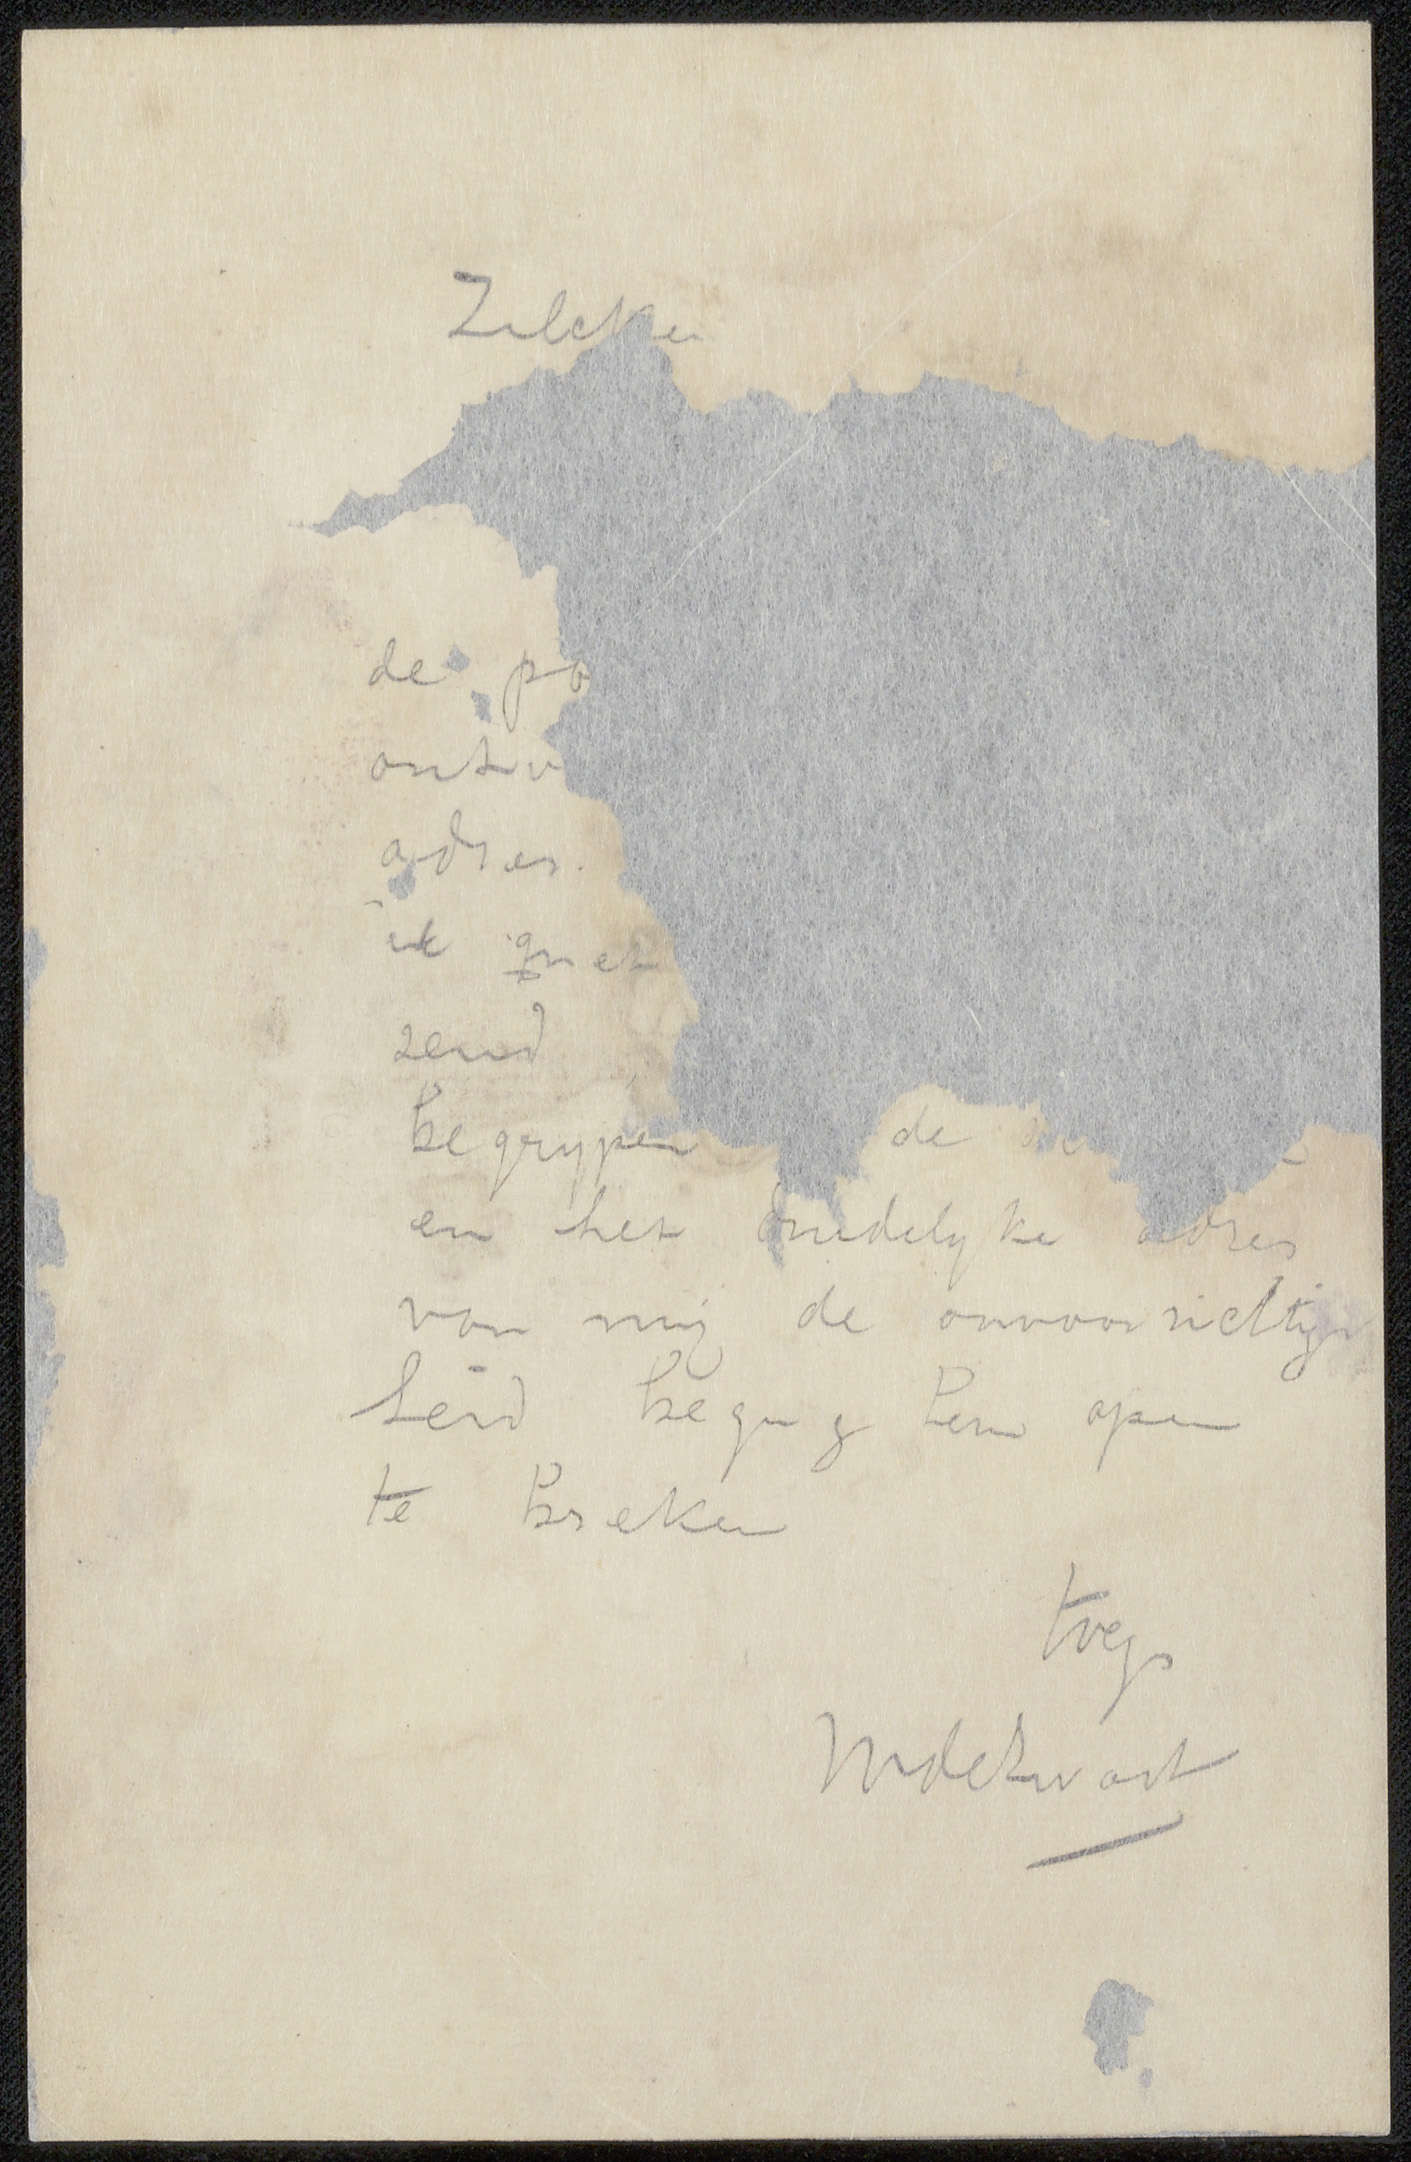 Zilcken
de po
ontv
adres.
ik met
zend
begrypen de
en het duidelyke adres
van mij de onvoorzichtig
heid beging hem open
te breken
tvgs
WdeZwart